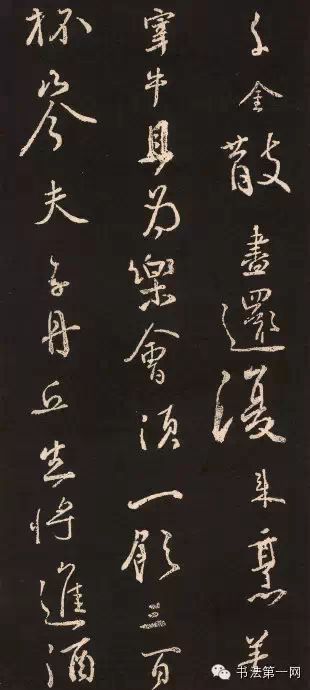 千金散盡還復來烹羊
宰牛且為樂會須一飲三百
杯岑夫子丹丘生將進酒
书法第一网